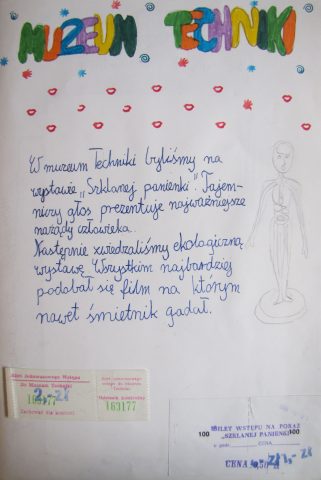 MUZEUM TECHNIKI
W muzeum Techniki byliśmy na
wystawie „Szklanej panienki". Tajem-
niczy głos prezentuje najważniejsze
nażądy człowieka.
Następnie zwiedzaliśmy ekologiczną
wystawę. Wszystkim najbardziej
podobał się film na którym
nawet śmietnik gadał.
Bilet Jednorazowego Wstępu
Do Muzeum Techniki
2,- zł
163177
Zachować dla kontroli
163177
BILET WSTĘPU NA POKAZ
100 "SZKLANEJ PANIENKI" 100
CENA